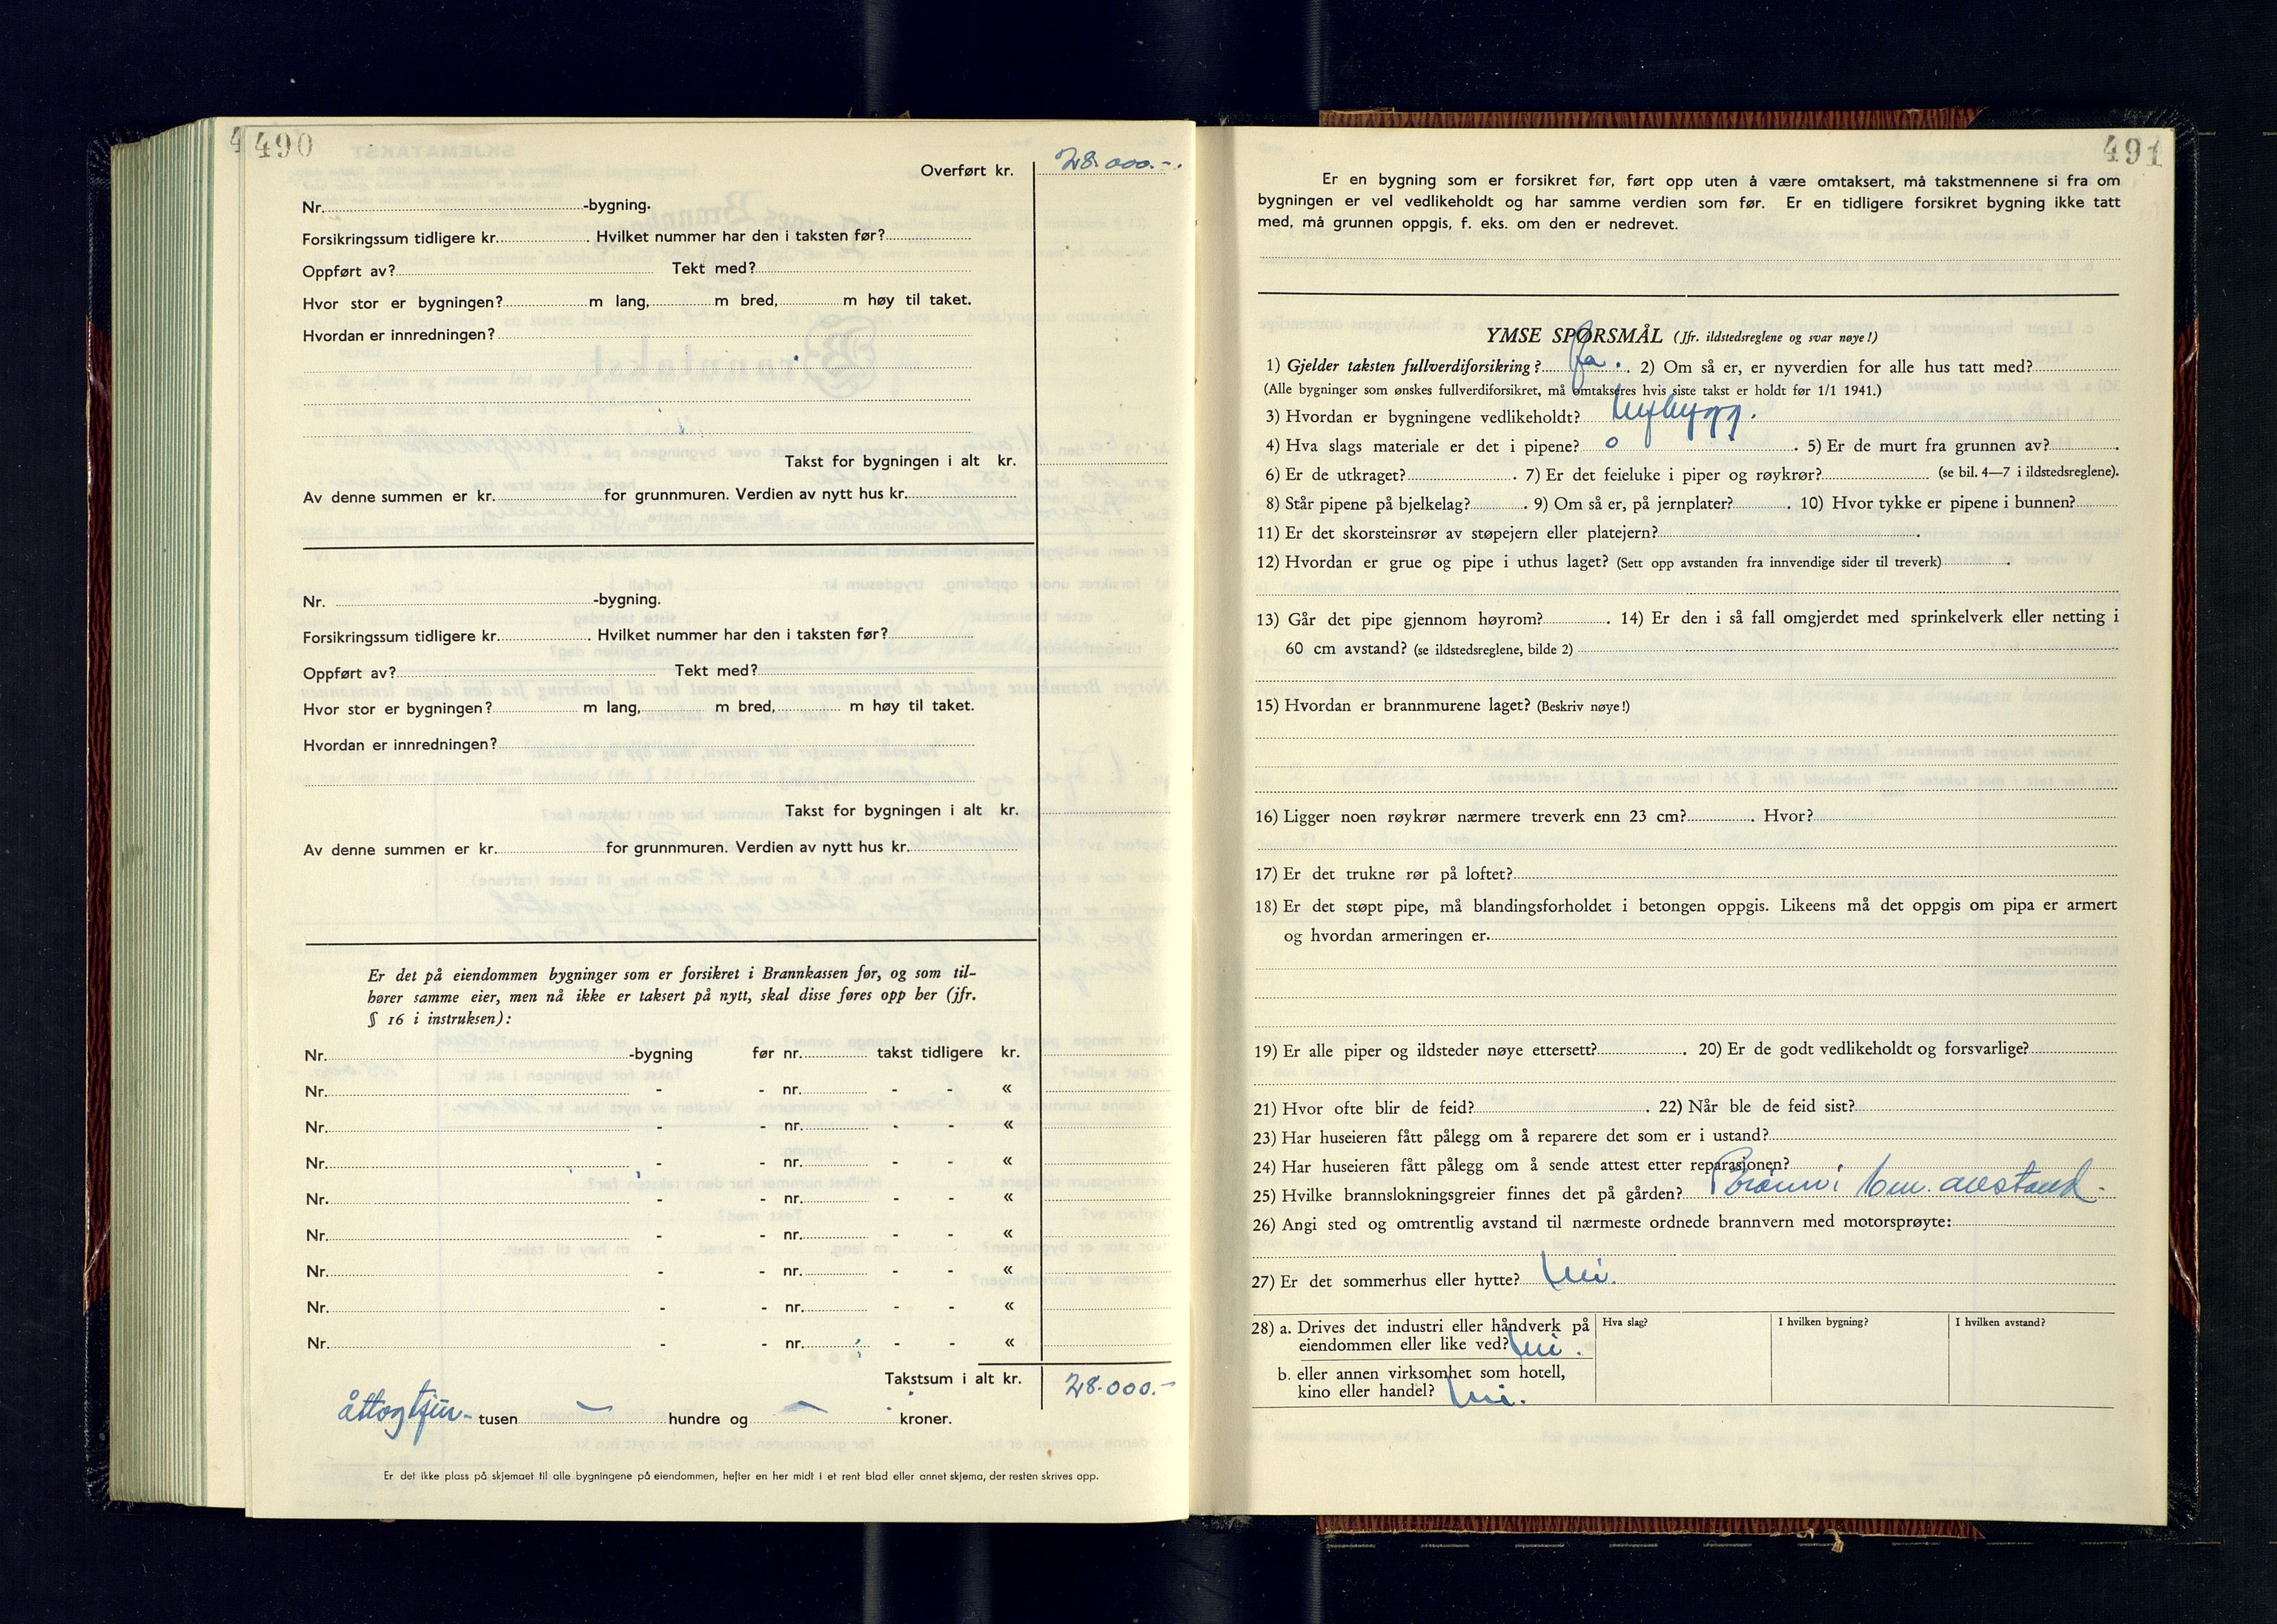 490
Overført kr. 28.000.-
Nr. -bygning.
Forsikringssum tidligere kr. Hvilket nummer har den i taksten før?
Oppført av? Tekt med?
Hvor stor er bygningen? m lang, m bred, m høy til taket.
Hvordan er innredningen?
Takst for bygningen i alt kr.
Av denne summen er kr. for grunnmuren. Verdien av nytt hus kr.
Nr. -bygning.
Forsikringssum tidligere kr. Hvilket nummer har den i taksten før?
Oppført av? Tekt med?
Hvor stor er bygningen? m lang, m bred, m høy til taket.
Hvordan er innredningen?
Takst for bygningen i alt kr.
Av denne summen er kr. for grunnmuren. Verdien av nytt hus kr.
Er det på eiendommen bygninger som er forsikret i Brannkassen før, og som til-
hører samme eier, men nå ikke er taksert på nytt, skal disse føres opp her (jfr.
§ 16 i instruksen):
Nr. -bygning før nr. takst tidligere kr.
Nr. - - nr. - - «
Nr. - - nr. - - «
Nr. - - nr. - - «
Nr. - - nr. - - «
Nr. - - nr. - - «
Nr. - - nr. - - «
Nr. - - nr. - - «
Nr. - - nr. - - «
Takstsum i alt kr. 28.000.-
åttogtjue- tusen — hundre og — kroner.
Er det ikke plass på skjemaet til alle bygningene på eiendommen, hefter en her midt i et rent blad eller annet skjema, der resten skrives opp.
491
Er en bygning som er forsikret før, ført opp uten å være omtaksert, må takstmennene si fra om
bygningen er vel vedlikeholdt og har samme verdien som før. Er en tidligere forsikret bygning ikke tatt
med, må grunnen oppgis, f. eks. om den er nedrevet.
YMSE SPØRSMÅL (Jfr. ildstedsreglene og svar nøye!)
1) Gjelder taksten fullverdiforsikring? Ja. 2) Om så er, er nyverdien for alle hus tatt med?
(Alle bygninger som ønskes fullverdiforsikret, må omtakseres hvis siste takst er holdt før 1/1 1941.)
3) Hvordan er bygningene vedlikeholdt? Nybygg.
4) Hva slags materiale er det i pipene? o 5) Er de murt fra grunnen av?
6) Er de utkraget? 7) Er det feieluke i piper og røykrør? (se bil. 4—7 i ildstedsreglene).
8) Står pipene på bjelkelag? 9) Om så er, på jernplater? 10) Hvor tykke er pipene i bunnen?
11) Er det skorsteinsrør av støpejern eller platejern?
12) Hvordan er grue og pipe i uthus laget? (Sett opp avstanden fra innvendige sider til treverk)
13) Går det pipe gjennom høyrom? 14) Er den i så fall omgjerdet med sprinkelverk eller netting i
60 cm avstand? (se ildstedsreglene, bilde 2)
15) Hvordan er brannmurene laget? (Beskriv nøye!)
16) Ligger noen røykrør nærmere treverk enn 23 cm? Hvor?
17) Er det trukne rør på loftet?
18) Er det støpt pipe, må blandingsforholdet i betongen oppgis. Likeens må det oppgis om pipa er armert
og hvordan armeringen er.
19) Er alle piper og ildsteder nøye ettersett? 20) Er de godt vedlikeholdt og forsvarlige?
21) Hvor ofte blir de feid? 22) Når ble de feid sist?
23) Har huseieren fått pålegg om å reparere det som er i ustand?
24) Har huseieren fått pålegg om å sende attest etter reparasjonen?
25) Hvilke brannslokningsgreier finnes det på gården? Brønn i 6m. avstand.
26) Angi sted og omtrentlig avstand til nærmeste ordnede brannvern med motorsprøyte:
27) Er det sommerhus eller hytte? Nei.
28) a. Drives det industri eller håndverk på Hva slag? I hvilken bygning? I hvilken avstand?
eiendommen eller like ved? Nei.
b. eller annen virksomhet som hotell,
kino eller handel? Nei.